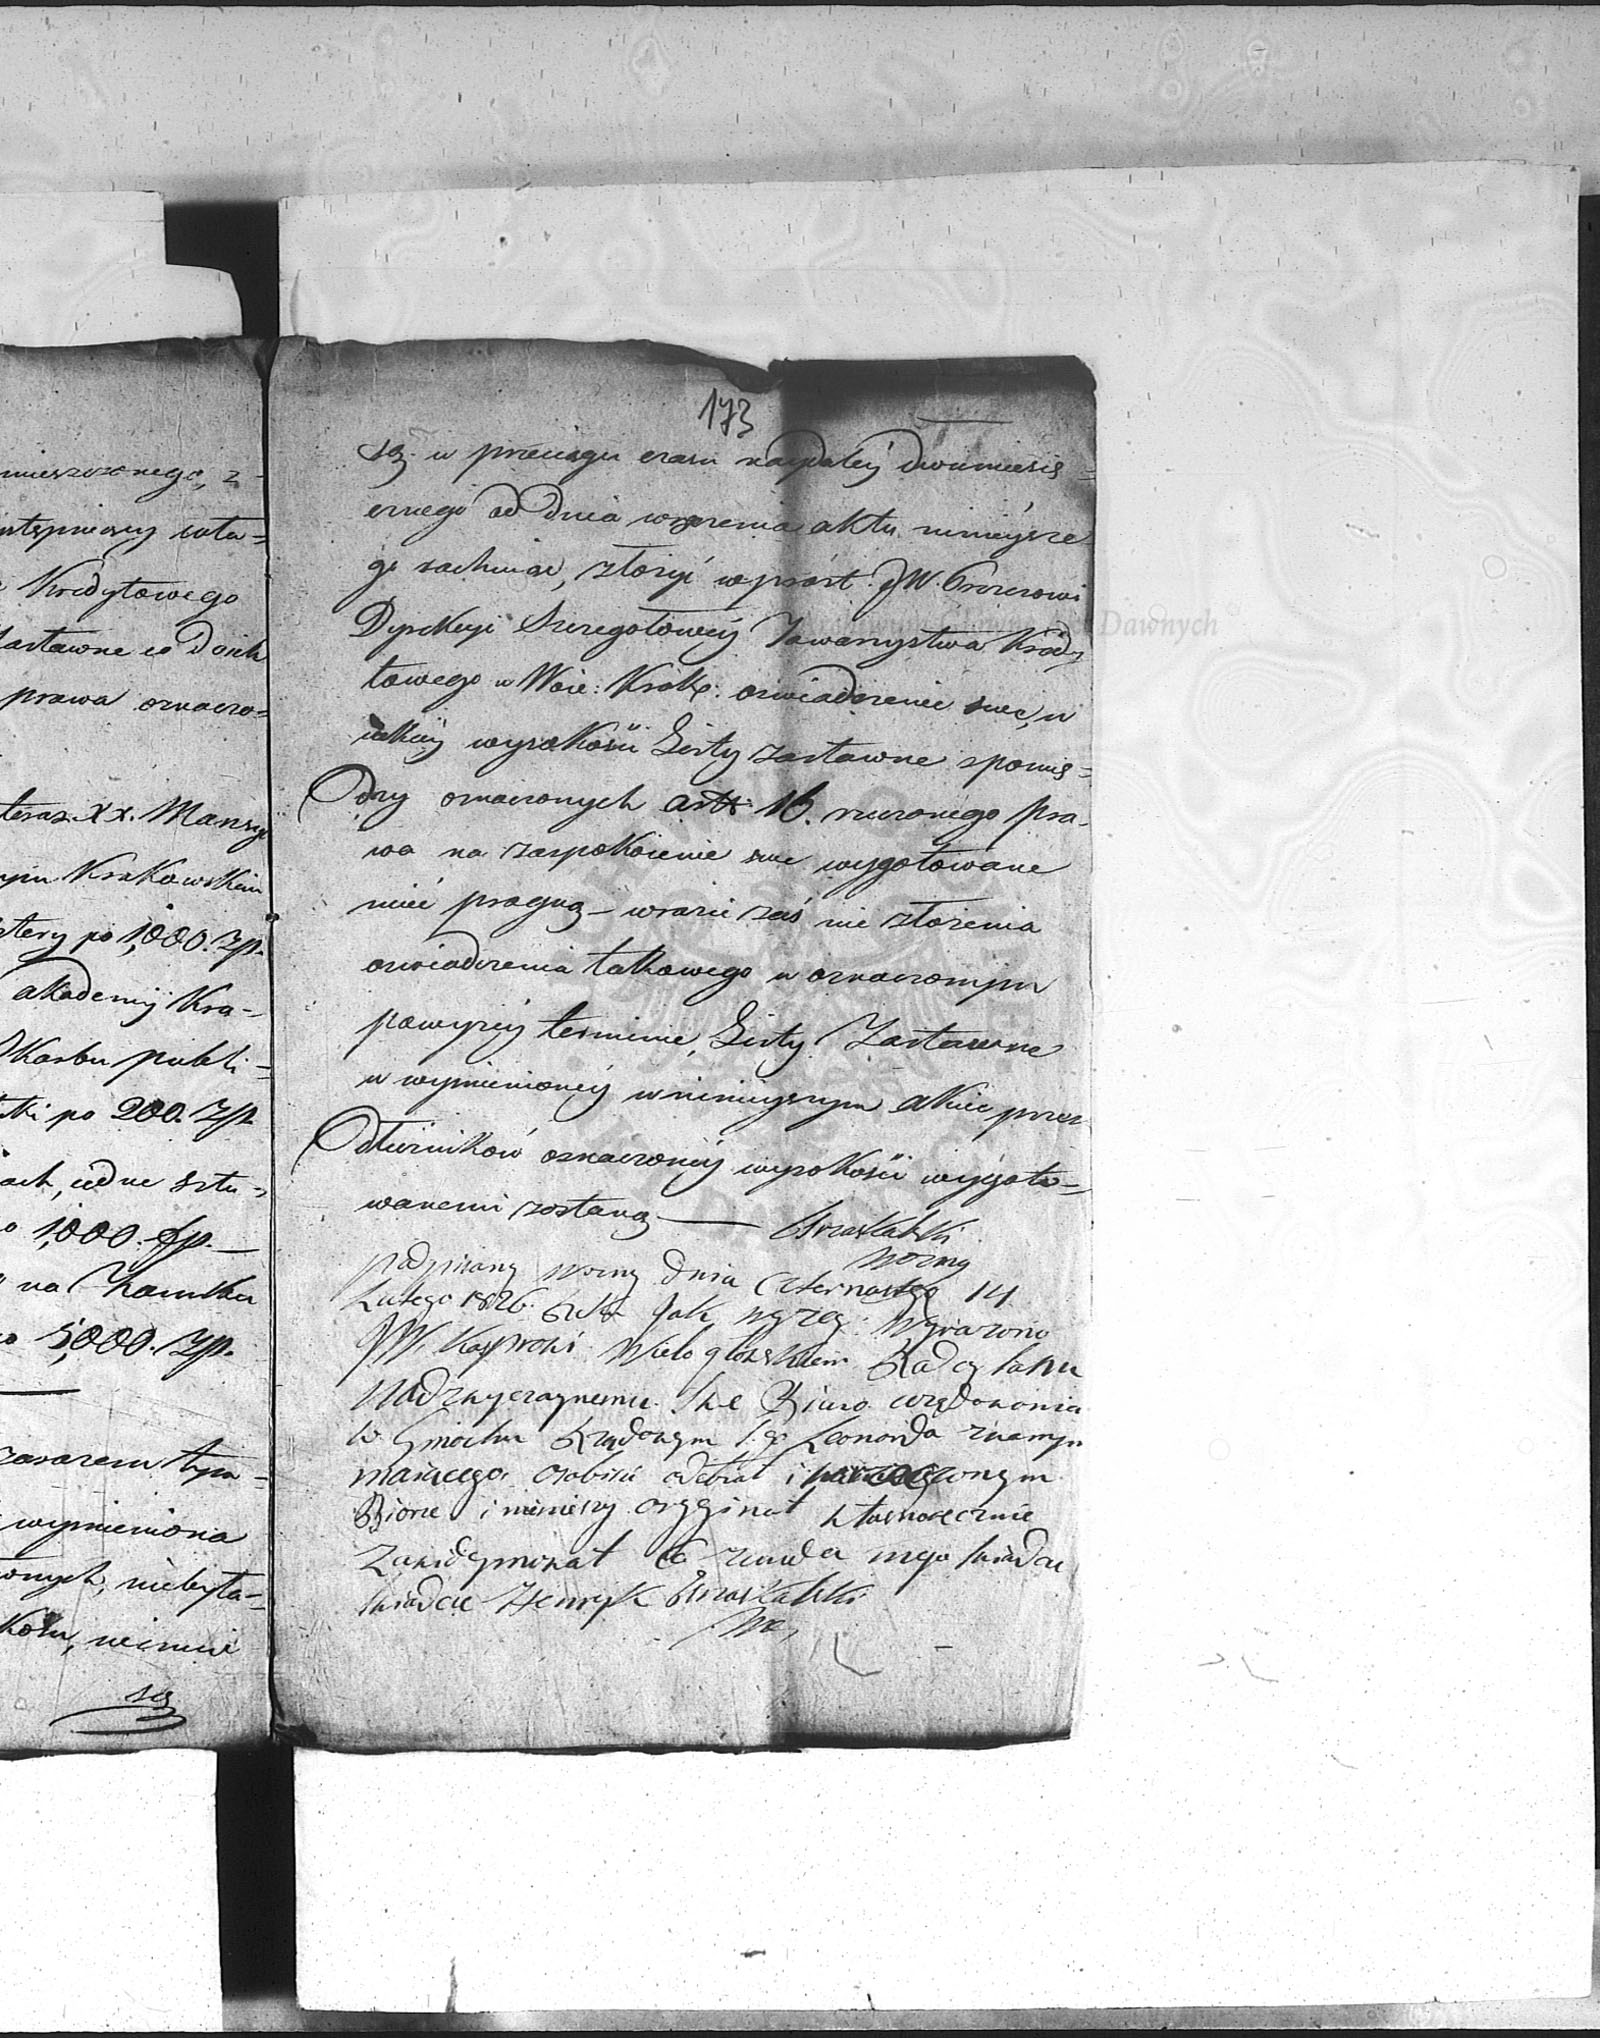 mieszczonego, z
wstępniący insta=
Kredytowego
Zastawne co do ich
prawa oznaczo=
teraz XX. Mansyo
Krakowskim
cztery po 1,000. Zp.
akademij Kra=
Skarbu publi=
po 200. Zp.
iedne sztu=
1,000. Zp.
na Zamku
5,000. Zp.
zawarem tym=
wymieniona
nieinié
się
173
się w przeciągu czasu naydaléy dwumiesię=
cznego od dnia wręczenia aktu ninieysze
go rachuiąc, złożyć wprost JW. Prezesowi
Dyrekcyi Szczegółowéy Towarzystwa Kredy
towego w Woie: Krak: oświadczenie swe, w
iakiéy wysokości Listy zastawne z pomię=
dzy oznaczonych artt: 16. rzeczonego pra-
wa na zaspokoienie swe wygotowane
mieć pragną – w razie zaś nie złożenia
oświadczenia takowego w oznaczonym
powyżéy terminie, Listy Zastawne
w wymienionéy w ninieyszym akcie przez
Dłużników oznaczonéy wysokości wygoto=
wanemi zostaną —
Woźny
podpisany Woźny dnia Czternastego 14
Lutego 1826. jak wyżey: Wyrażono
JW. Kasprowi Wielogłowskiemu Radcy Stanu
Nadzwyczaynemu Swe Biuro urzędowania
w Gmachu Rządowym Sgo Leonarda zwanym
maiącego osobiście odebrał i
Biorze i ninieyszy oryginał własnoręcznie
Zawidymował Co zwała mego świadcę
świadczę Henryk